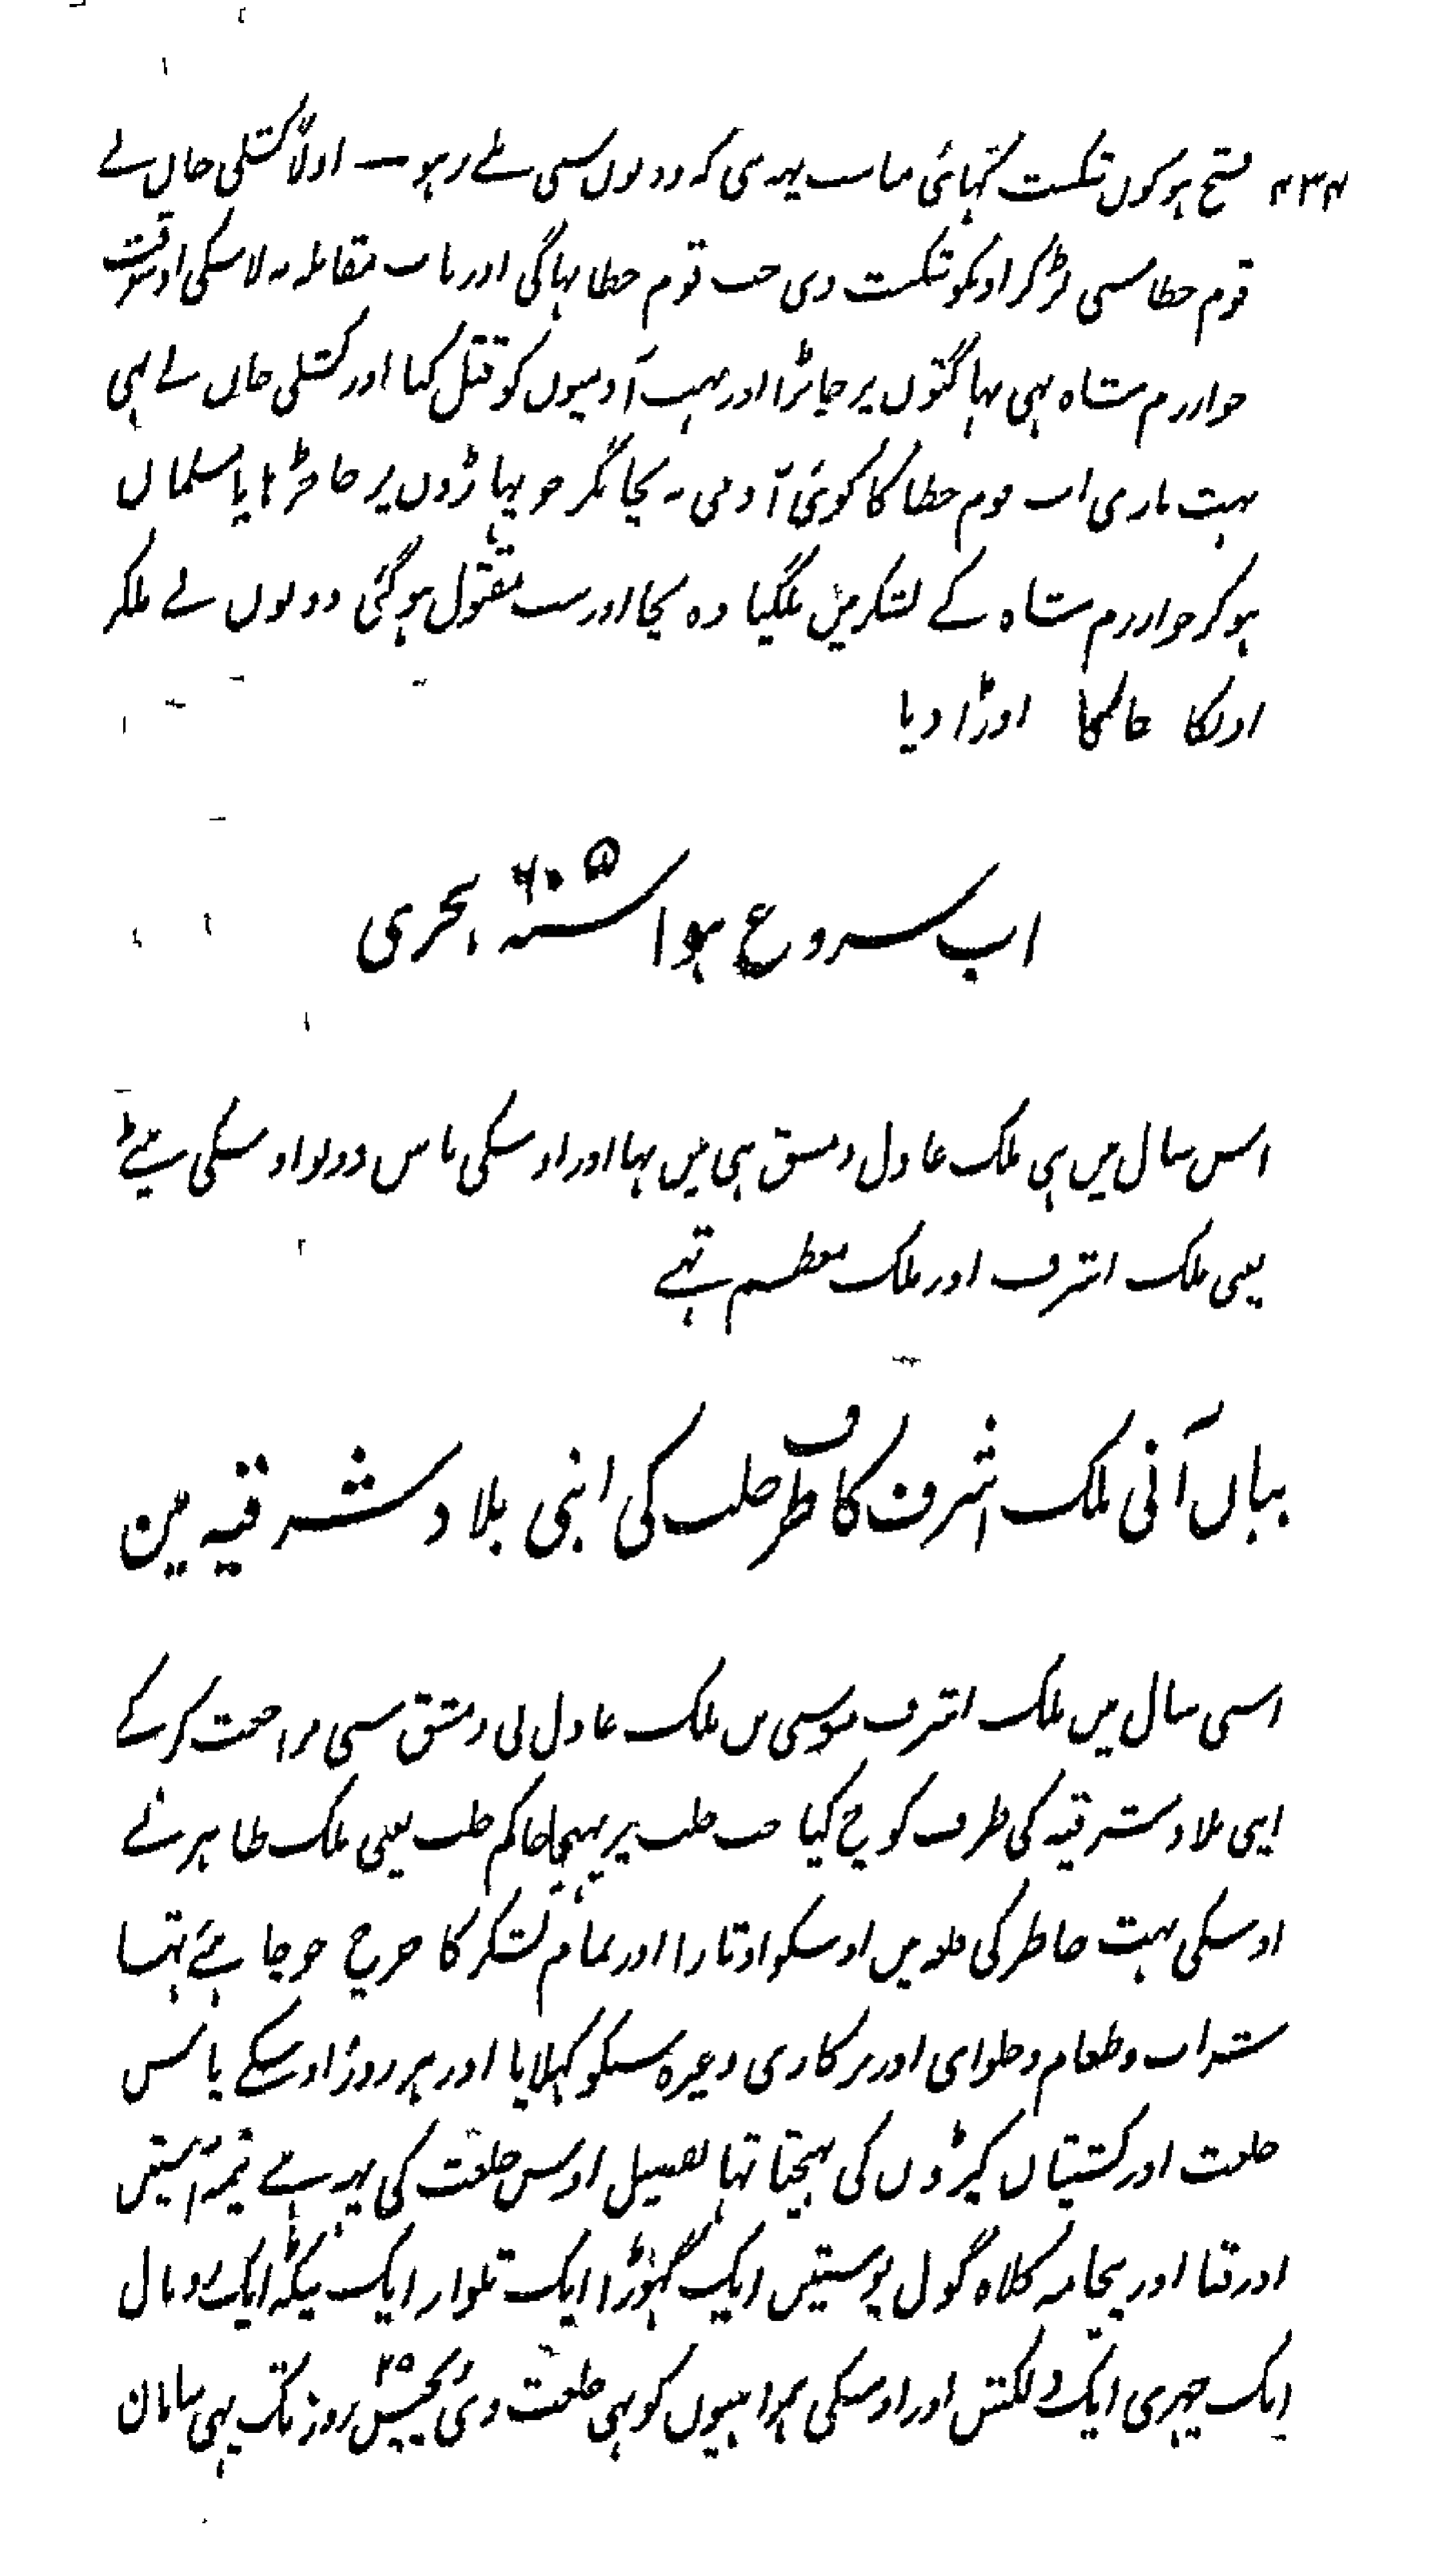 ۴۳۴ فتح ہو کون شکست کہائی مناسب یہہ ہی کہ دونوں سی ملے رہو — اولاً کشلی خاں نے
قوم خطا سی لڑ کر اونکو شکست دی جب قوم خطا بہاگی اور تاب مقابلہ نہ لاسکی اوسوقت
خوارزم شاہ بہی بہاگتوں پر جا پڑا اور بہت آدمیوں کو قتل کیا اور کشلی خاں نے بہی
بہت ماری اب قوم خطا کا کوئی آدمی نہ بچا مگر جو پہاڑوں پر جا چڑہا یا مسلمان
ہو کر خوارزم شاہ کے لشکر میں ملگیا وہ بچا اور سب مقتول ہو گئی دونوں نے ملکر
اونکا خاکا اوڑا دیا
اب شروع ہوا سنہ ۶۰۵ ہجری
اس سال میں بہی ملک عادل دمشق ہی میں تہا اور اوسکی پاس دونو اوسکی بیٹے
یعنی ملک اشرف اور ملک معظم تہے
بیاں آنی ملک اشرف کا طرف حلب کی اپنی بلاد شرقیہ مین
اسی سال میں ملک اشرف موسی بن ملک عادل نی دمشق سی مراجعت کر کے
اپنی بلاد شرقیہ کی طرف کوچ کیا جب حلب پر پہنچا حاکم حلب یعنی ملک ظاہر نے
اوسکی بہت خاطر کی قلعہ میں اوسکو اوتارا اور تمام لشکر کا خرچ جو چاہئے تہا
شراب و طعام و حلوای اور ترکاری وغیرہ سبکو کہلایا اور ہر روز اوسکے پاس
خلعت اور کشتیاں کپڑوں کی بہیجتا تہا تفصیل اوس خلعت کی یہہ ہے نیمہ آستین
اور قبا اور پیجامہ کلاہ گول پوستین ایک گہوڑا ایک تلوار ایک پٹکہ ایک رومال
ایک چہری ایک دلکش اور اوسکی ہمراہیوں کو بہی خلعت دی پچیس ۲۵ روز تک یہی سامان